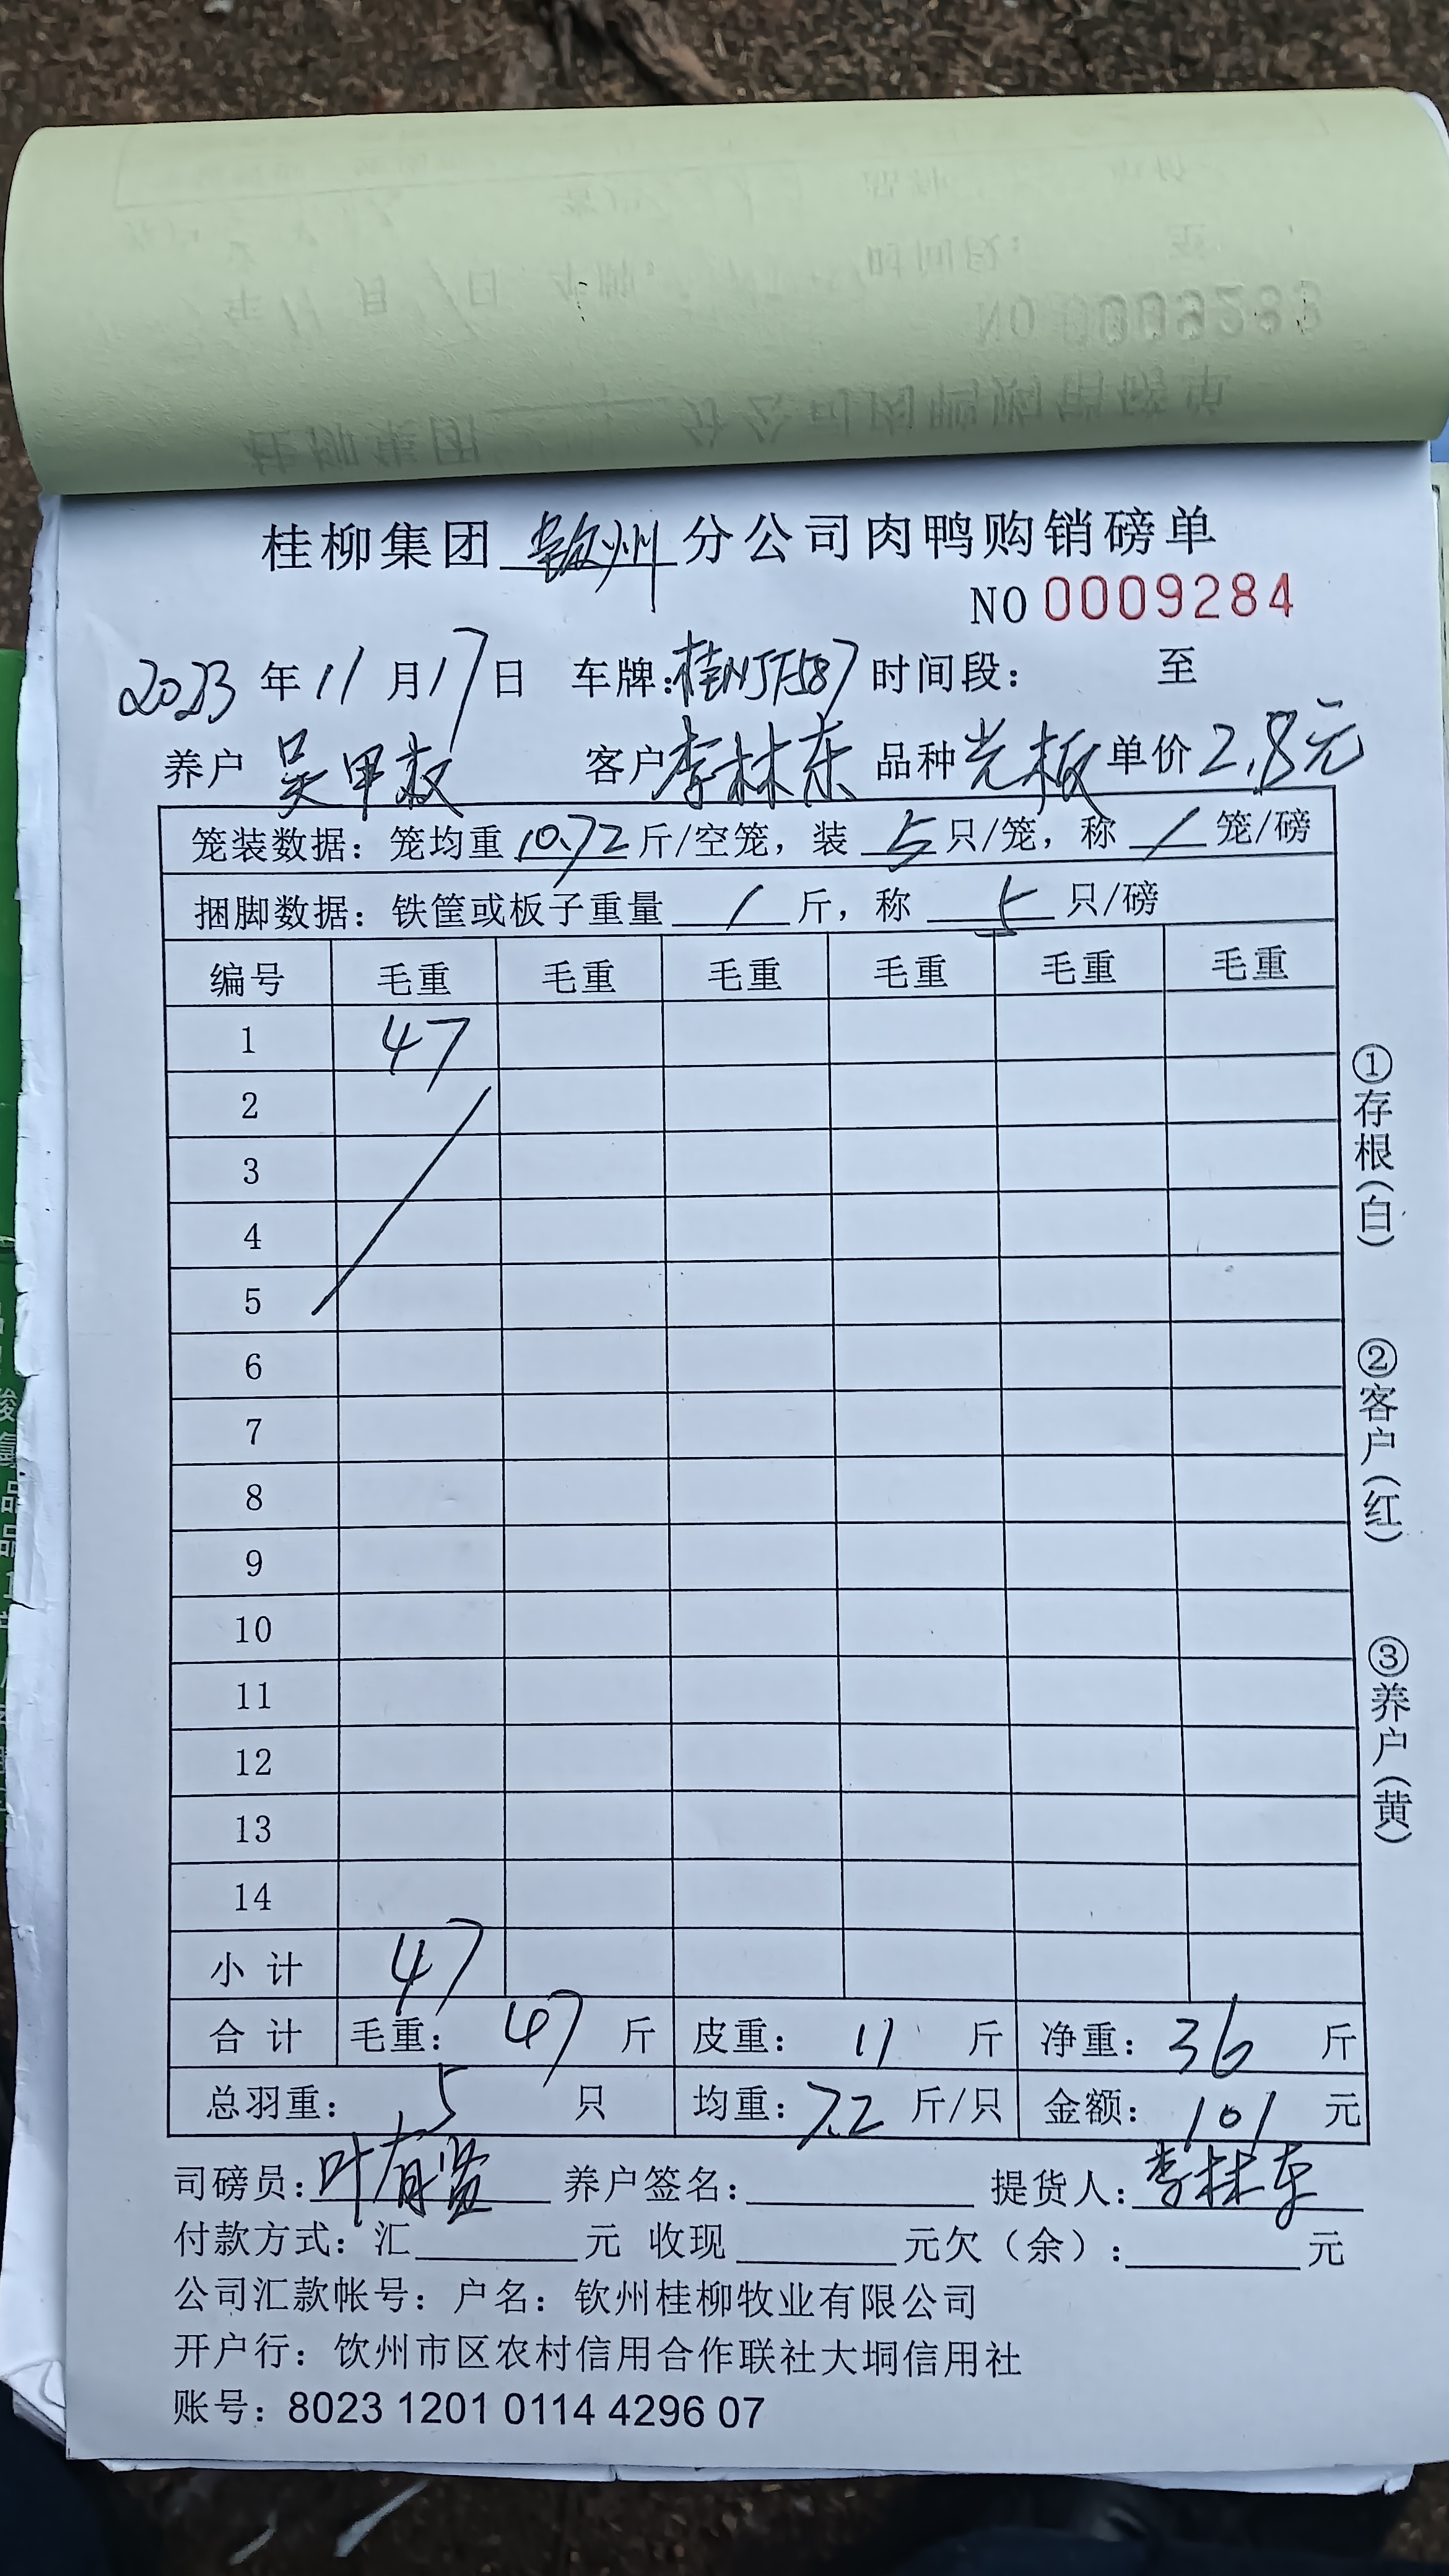 桂柳集团 钦州 分公司肉鸭购销磅单
NO 0009284
2023 年 11 月 17 日 车牌: 时间段: 至
养户 客户 李林东 品种 光板 单价 2.8元
笼装数据: 笼均重 10.72 斤/空笼, 装 5 只/笼, 称 / 笼/磅
捆脚数据: 铁筐或板子重量 / 斤, 称 5 只/磅
编号 毛重 毛重 毛重 毛重 毛重 毛重
1 47
2
3
4
5
6
7
8
9
10
11
12
13
14
小计 47
合计 毛重: 47 斤 皮重: 11 斤 净重: 36 斤
总羽重: 5 只 均重: 7.2 斤/只 金额: 101 元
司磅员: 叶有 养户签名: 提货人: 李林东
付款方式: 汇 元 收现 元欠(余): 元
公司汇款帐号: 户名: 钦州桂柳牧业有限公司
开户行: 饮州市区农村信用合作联社大垌信用社
账号: 8023 1201 0114 4296 07
①存根(白)
②客户(红)
③养户(黄)